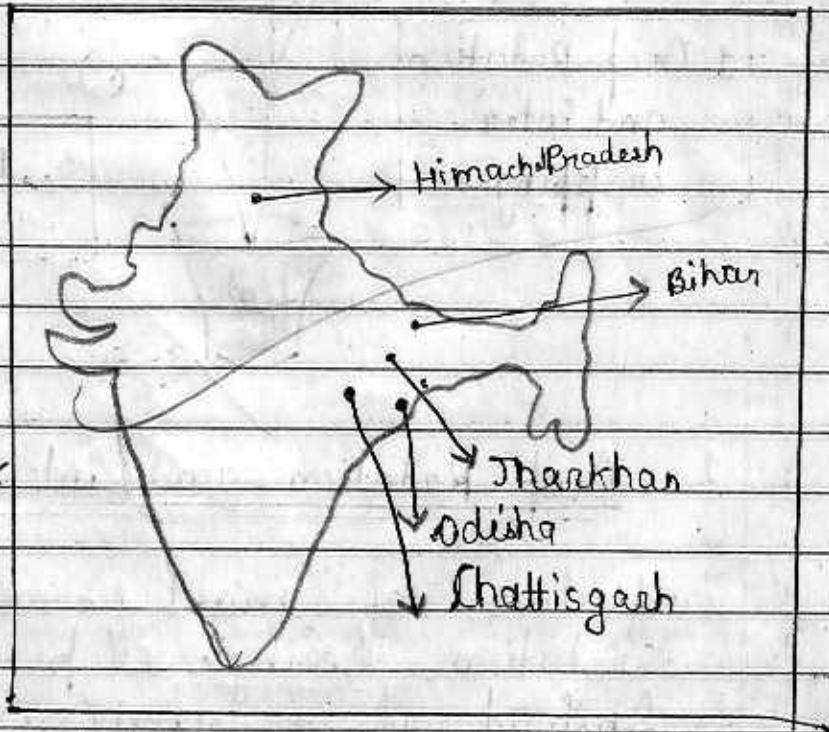 Himachal Pradesh
Bihar
Jharkhan
Odisha
Chattisgarh